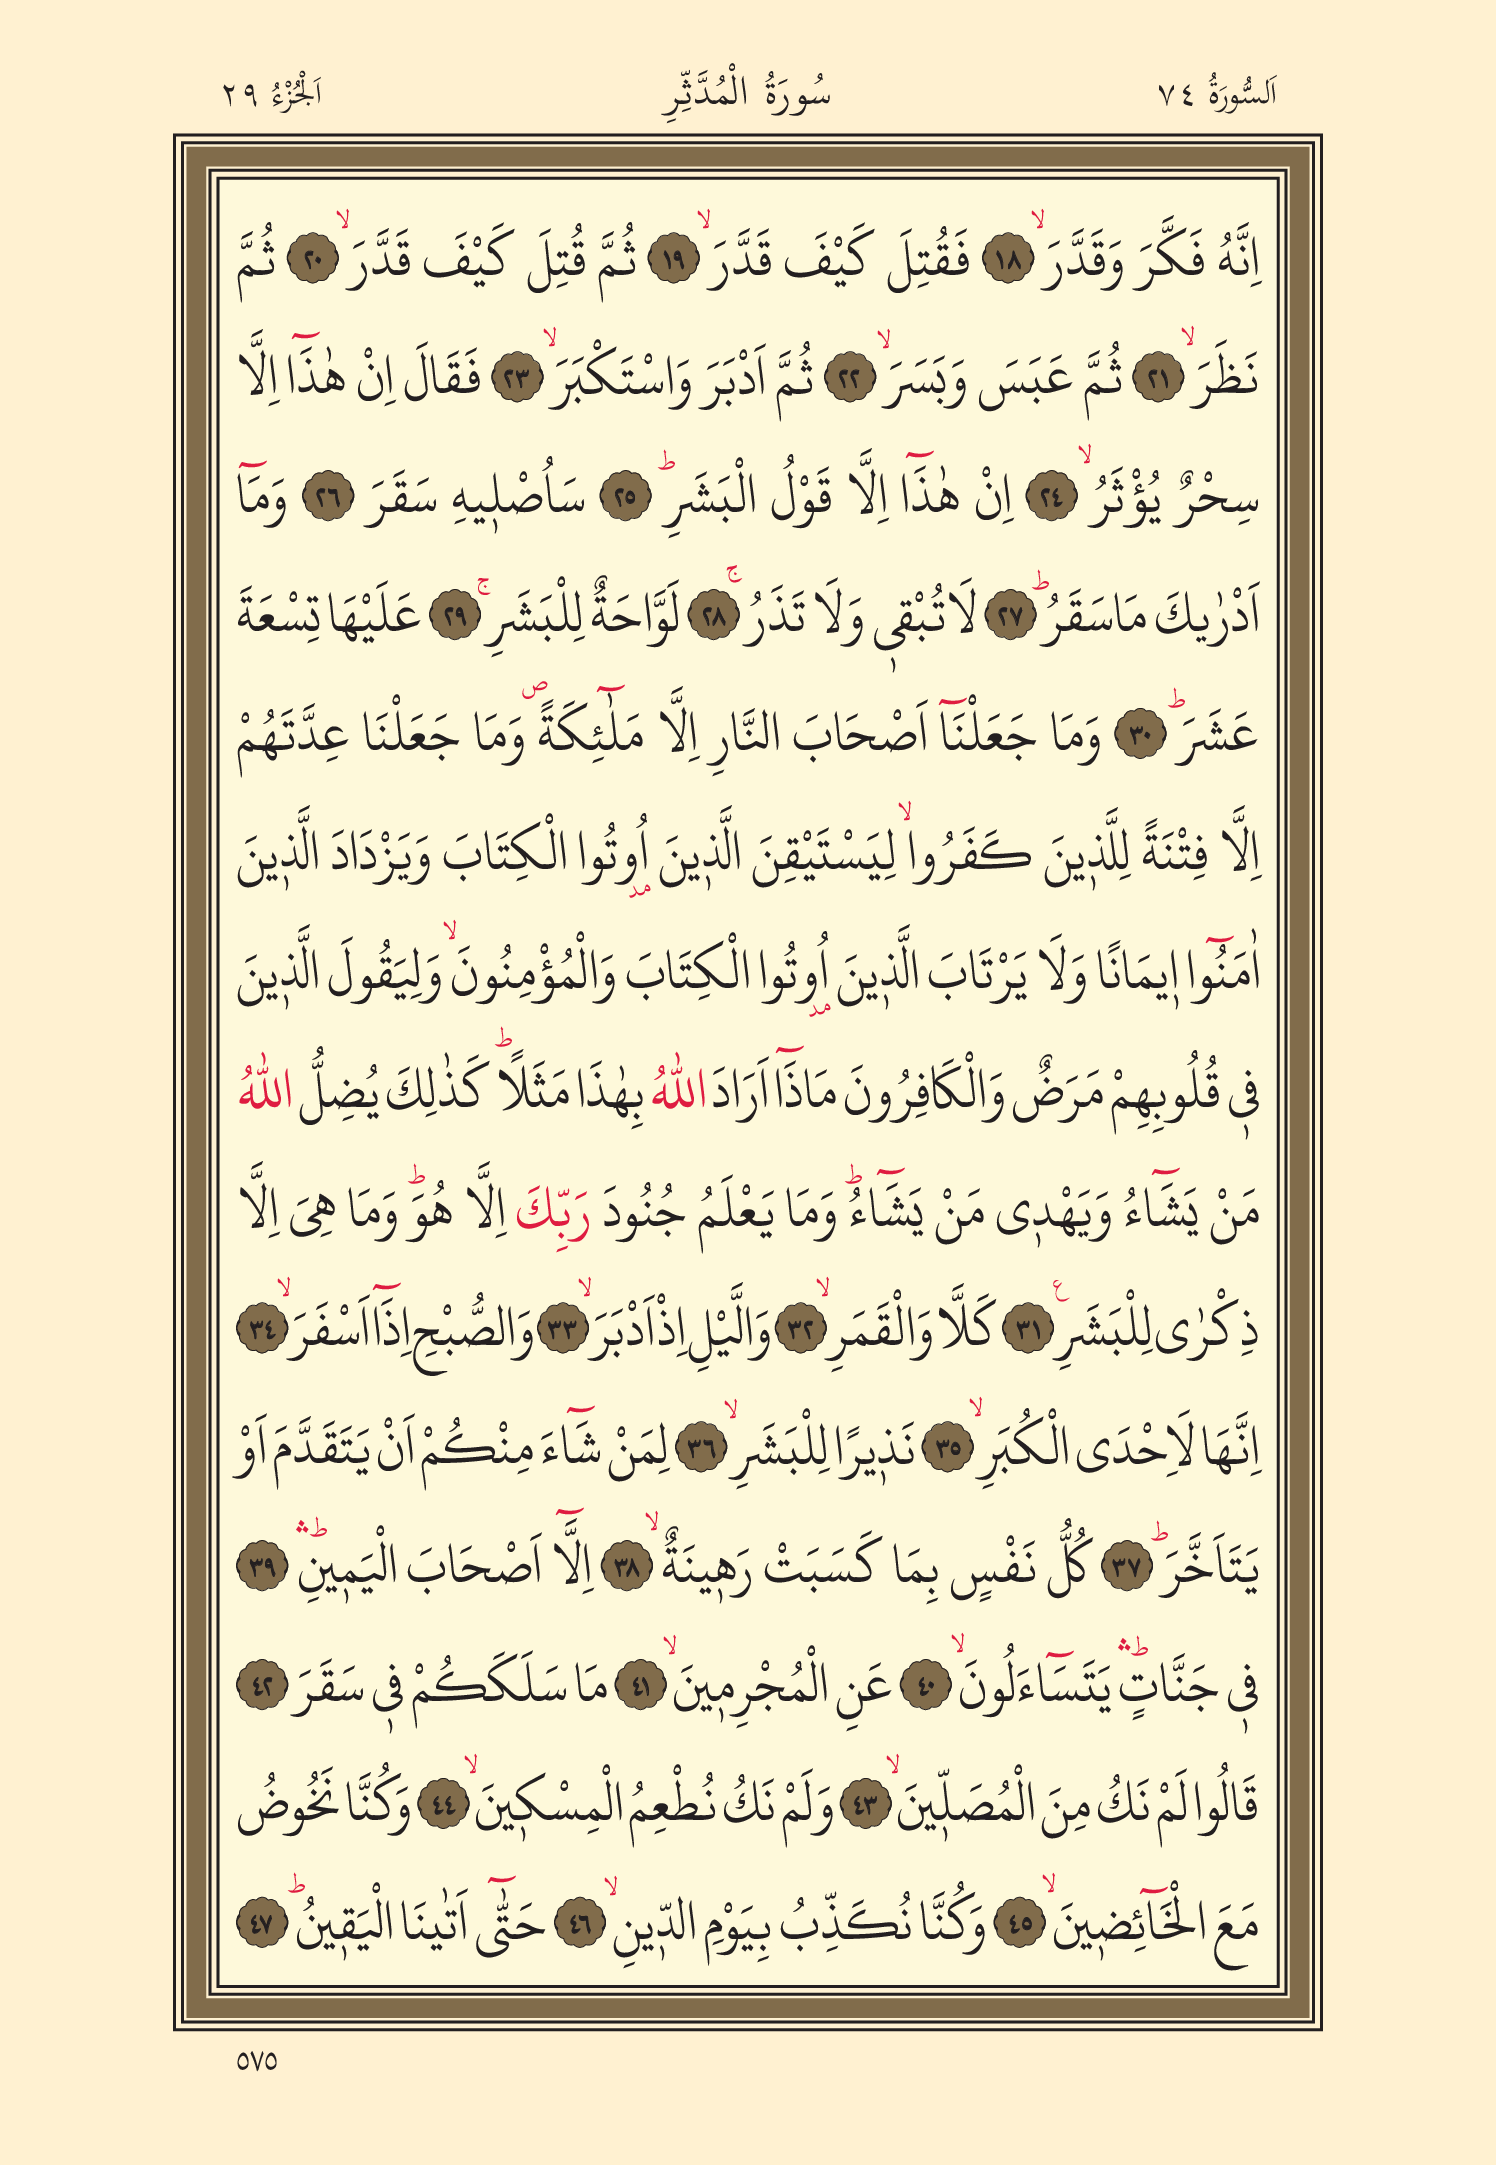 اَلسُّورَةُ ٧٤ سُورَةُ الْمُدَّثِّرِ اَلْجُزْءُ ٢٩
اِنَّهُ فَكَّرَ وَقَدَّرَۙ ﴿١٨﴾ فَقُتِلَ كَيْفَ قَدَّرَۙ ﴿١٩﴾ ثُمَّ قُتِلَ كَيْفَ قَدَّرَۙ ﴿٢٠﴾ ثُمَّ
نَظَرَۙ ﴿٢١﴾ ثُمَّ عَبَسَ وَبَسَرَۙ ﴿٢٢﴾ ثُمَّ اَدْبَرَ وَاسْتَكْبَرَۙ ﴿٢٣﴾ فَقَالَ اِنْ هٰذَٓا اِلَّا
سِحْرٌ يُؤْثَرُۙ ﴿٢٤﴾ اِنْ هٰذَٓا اِلَّا قَوْلُ الْبَشَرِؕ ﴿٢٥﴾ سَاُصْلٖيهِ سَقَرَ ﴿٢٦﴾ وَمَٓا
اَدْرٰيكَ مَاسَقَرُؕ ﴿٢٧﴾ لَاتُبْقٖى وَلَا تَذَرُۚ ﴿٢٨﴾ لَوَّاحَةٌ لِلْبَشَرِۚ ﴿٢٩﴾ عَلَيْهَا تِسْعَةَ
عَشَرَؕ ﴿٣٠﴾ وَمَا جَعَلْنَٓا اَصْحَابَ النَّارِ اِلَّا مَلٰٓئِكَةًࣕ وَمَا جَعَلْنَا عِدَّتَهُمْ
اِلَّا فِتْنَةً لِلَّذٖينَ كَفَرُواۙ لِيَسْتَيْقِنَ الَّذٖينَ اُوتُوا الْكِتَابَ وَيَزْدَادَ الَّذٖينَ
مد
اٰمَنُٓوا اٖيمَانًا وَلَا يَرْتَابَ الَّذٖينَ اُوتُوا الْكِتَابَ وَالْمُؤْمِنُونَۙ وَلِيَقُولَ الَّذٖينَ
مد
فٖى قُلُوبِهِمْ مَرَضٌ وَالْكَافِرُونَ مَاذَٓا اَرَادَ اللّٰهُ بِهٰذَا مَثَلًاؕ كَذٰلِكَ يُضِلُّ اللّٰهُ
مَنْ يَشَٓاءُ وَيَهْدٖى مَنْ يَشَٓاءُؕ وَمَا يَعْلَمُ جُنُودَ رَبِّكَ اِلَّا هُوَؕ وَمَا هِىَ اِلَّا
ذِكْرٰى لِلْبَشَرِ ع ﴿٣١﴾ كَلَّا وَالْقَمَرِۙ ﴿٣٢﴾ وَالَّيْلِ اِذْاَدْبَرَۙ ﴿٣٣﴾ وَالصُّبْحِ اِذَٓا اَسْفَرَۙ ﴿٣٤﴾
اِنَّهَا لَاِحْدَى الْكُبَرِۙ ﴿٣٥﴾ نَذٖيرًا لِلْبَشَرِۙ ﴿٣٦﴾ لِمَنْ شَٓاءَ مِنْكُمْ اَنْ يَتَقَدَّمَ اَوْ
يَتَاَخَّرَؕ ﴿٣٧﴾ كُلُّ نَفْسٍ بِمَا كَسَبَتْ رَهٖينَةٌۙ ﴿٣٨﴾ اِلَّٓا اَصْحَابَ الْيَمٖينِؕۛ ﴿٣٩﴾
فٖى جَنَّاتٍؕۛ يَتَسَٓاءَلُونَۙ ﴿٤٠﴾ عَنِ الْمُجْرِمٖينَۙ ﴿٤١﴾ مَا سَلَكَكُمْ فٖى سَقَرَ ﴿٤٢﴾
قَالُوا لَمْ نَكُ مِنَ الْمُصَلّٖينَۙ ﴿٤٣﴾ وَلَمْ نَكُ نُطْعِمُ الْمِسْكٖينَۙ ﴿٤٤﴾ وَكُنَّا نَخُوضُ
مَعَ الْخَٓائِضٖينَۙ ﴿٤٥﴾ وَكُنَّا نُكَذِّبُ بِيَوْمِ الدّٖينِۙ ﴿٤٦﴾ حَتّٰٓى اَتٰينَا الْيَقٖينُؕ ﴿٤٧﴾
٥٧٥